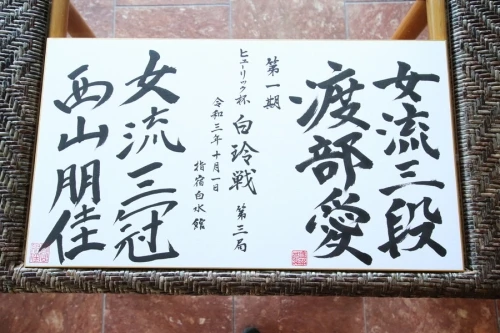 女流三段
渡部愛
第一期
ヒューリック杯 白玲戦 第三局
令和三年十月一日
指宿白水館
女流三冠
西山朋佳